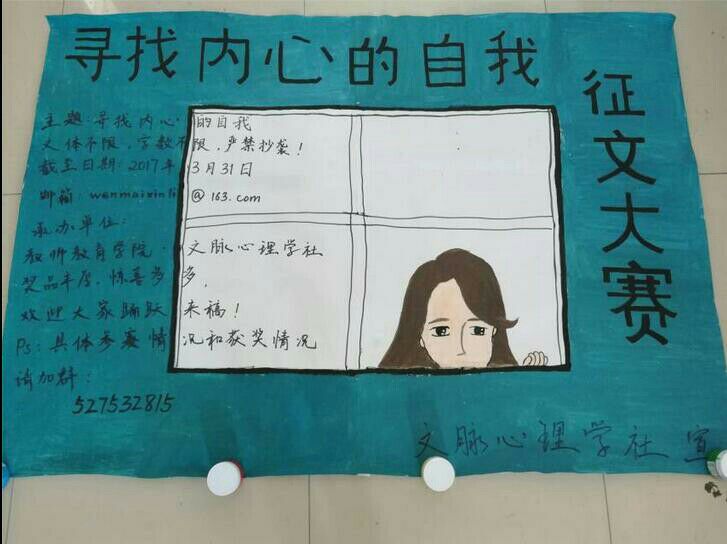 寻找内心的自我
征文大赛
主题:寻找内心的自我
文体不限,字数不限,严禁抄袭!
截至日期:2017年3月31日
邮箱:wenmaixinli@163.com
承办单位:
教师教育学院·文脉心理学社
奖品丰厚,惊喜多多,
欢迎大家踊跃来稿!
Ps:具体参赛情况和获奖情况
请加群:
527532815
文脉心理学社 宣